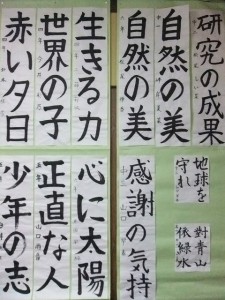 研究の成果
自然の美
自然の美
生きる力
世界の子
赤い夕日
地球を
守れ
對青山
依緑水
感謝の気持
心に太陽
正直な人
少年の志